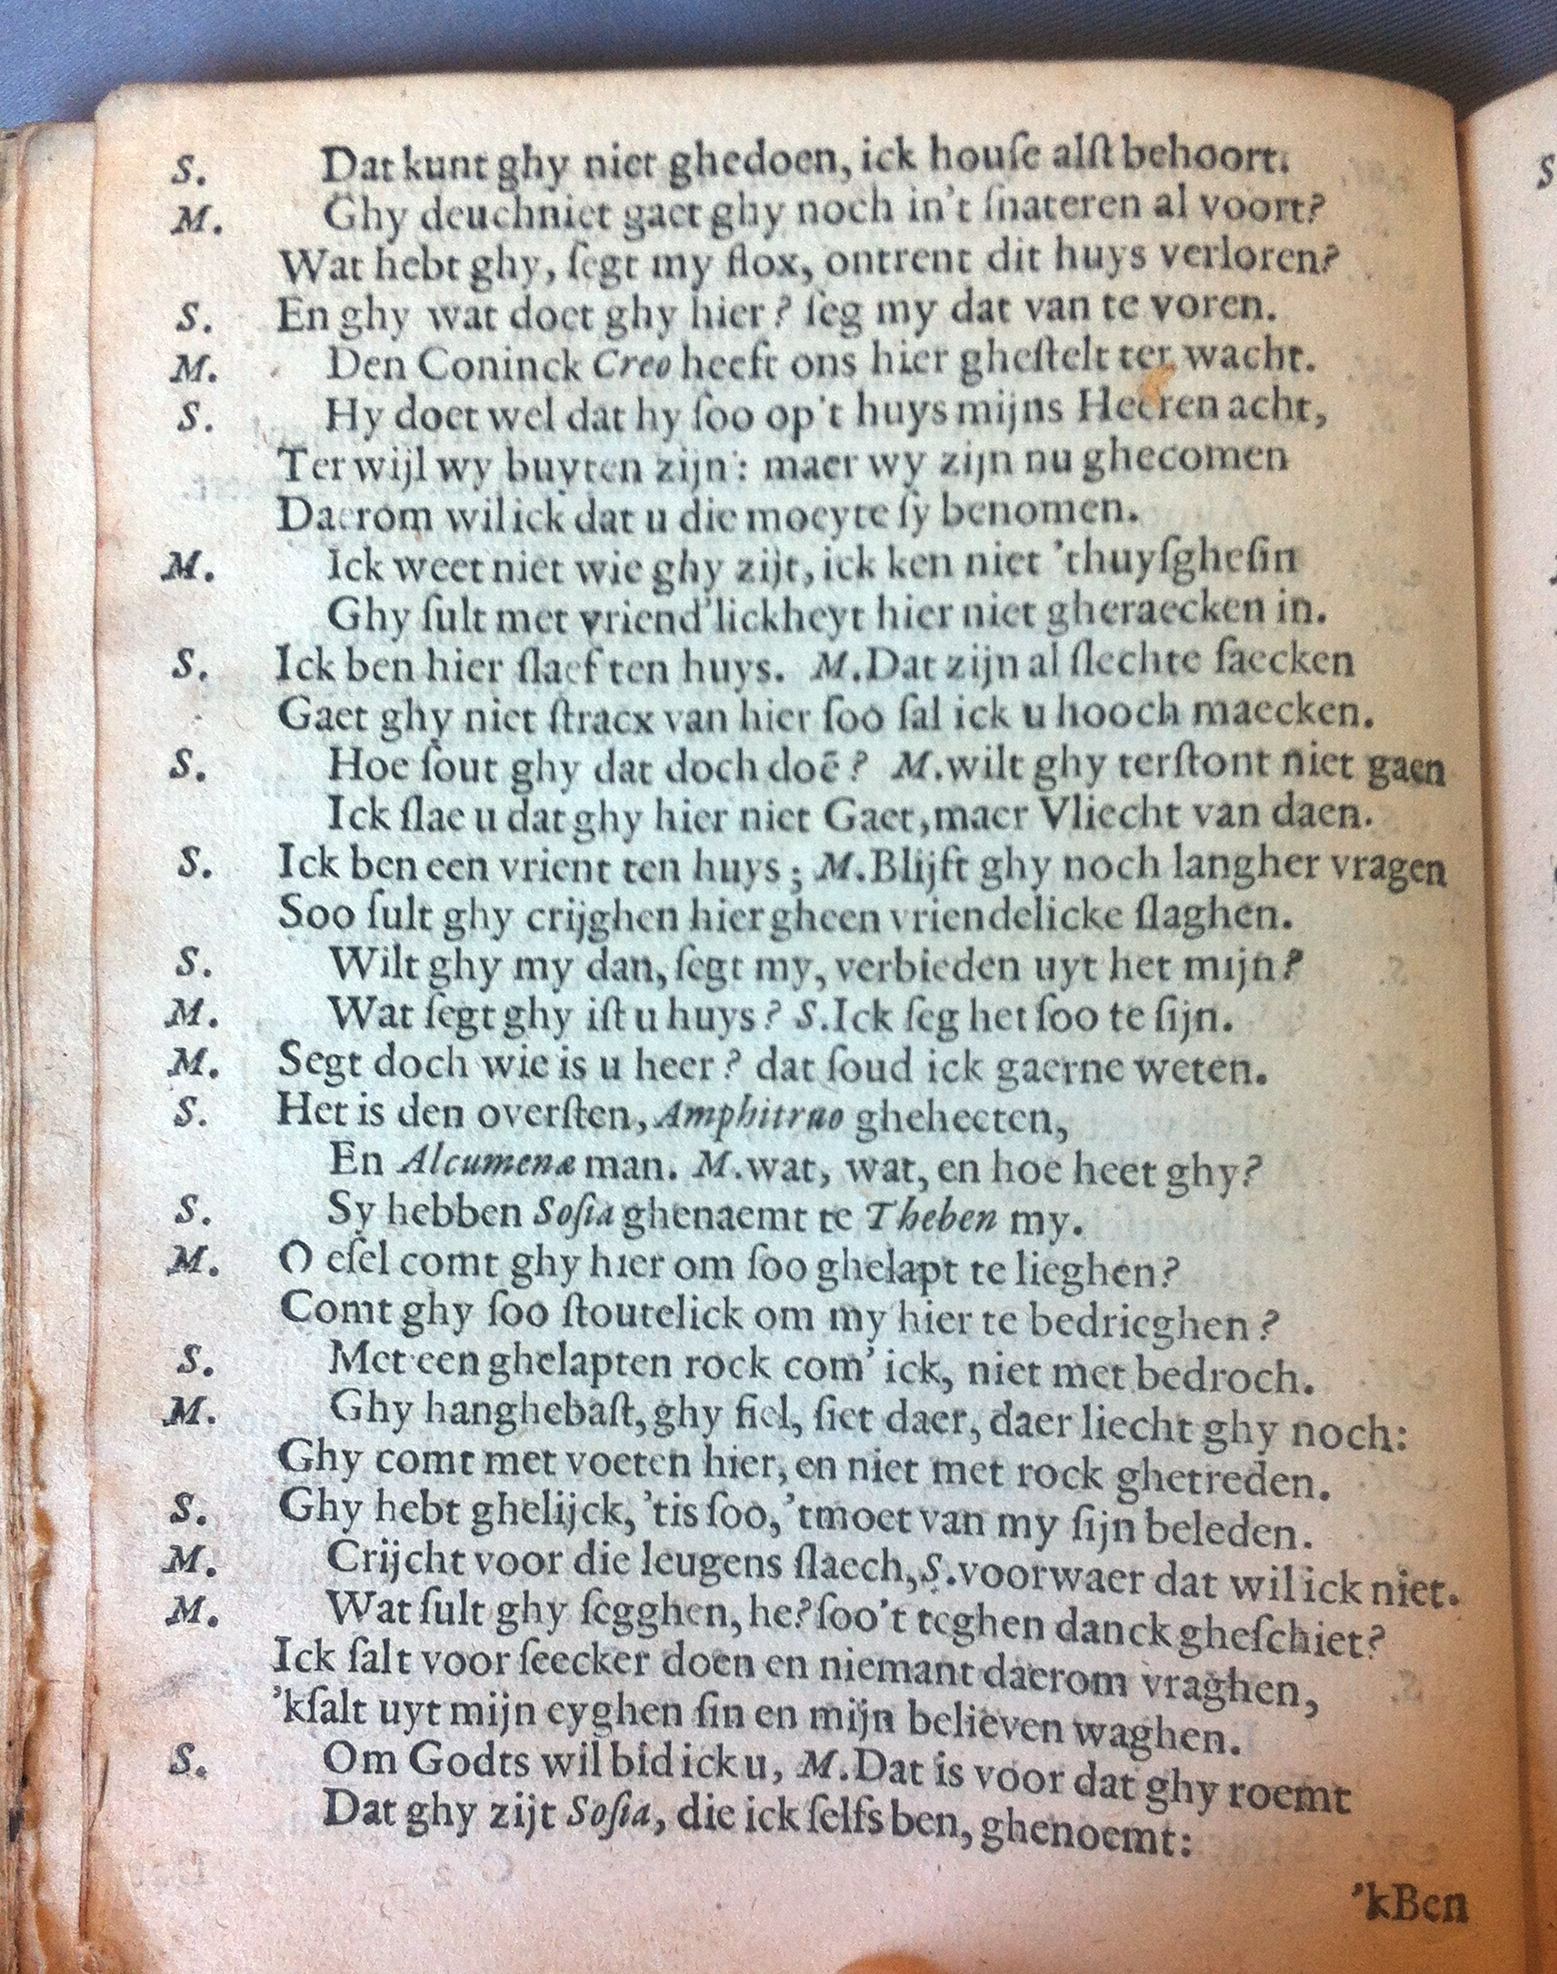 S. Dat kunt ghy niet ghedoen, ick houſe alſt behoort.
M. Ghy deuchniet gaet ghy noch in't ſnateren al voort?
Wat hebt ghy, ſegt my flox, ontrent dit huys verloren?
S. En ghy wat doet ghy hier? ſeg my dat van te voren.
M. Den Coninck Creo heeft ons hier gheſtelt ter wacht.
S. Hy doet wel dat hy ſoo op't huys mijns Heeren acht,
Terwijl wy buyten zijn: maer wy zijn nu ghecomen
Daerom wil ick dat u die moeyte ſy benomen.
M. Ick weet niet wie ghy zijt, ick ken niet 'thuyſgheſin
Ghy ſult met vriend'lickheyt hier niet gheraecken in.
S. Ick ben hier ſlaef ten huys. M. Dat zijn al ſlechte ſaecken
Gaet ghy niet ſtracx van hier ſoo ſal ick u hooch maecken.
S. Hoe ſout ghy dat doch doē? M. wilt ghy terſtont niet gaen
Ick ſlae u dat ghy hier niet Gaet, maer Vliecht van daen.
S. Ick ben een vrient ten huys; M. Blijft ghy noch langher vragen
Soo ſult ghy crijghen hier gheen vriendelicke ſlaghen.
S. Wilt ghy my dan, ſegt my, verbieden uyt het mijn?
M. Wat ſegt ghy iſt u huys? S. Ick ſeg het ſoo te ſijn.
M. Segt doch wie is u heer? dat ſoud ick gaerne weten.
S. Het is den overſten, Amphitruo gheheeten,
En Alcumenæ man. M. wat, wat, en hoe heet ghy?
S. Sy hebben Soſia ghenaemt te Theben my.
M. O eſel comt ghy hier om ſoo ghelapt te lieghen?
Comt ghy ſoo ſtoutelick om my hier te bedrieghen?
S. Met een ghelapten rock com' ick, niet met bedroch.
M. Ghy hanghebaſt, ghy fiel, ſiet daer, daer liecht ghy noch:
Ghy comt met voeten hier, en niet met rock ghetreden.
S. Ghy hebt ghelijck, 'tis ſoo, 'tmoet van my ſijn beleden.
M. Crijcht voor die leugens ſlaech, S. voorwaer dat wil ick niet.
M. Wat ſult ghy ſegghen, he? ſoo't teghen danck gheſchiet?
Ick ſalt voor ſeecker doen en niemant daerom vraghen,
'kſalt uyt mijn eyghen ſin en mijn believen waghen.
S. Om Godts wil bid ick u, M. Dat is voor dat ghy roemt
Dat ghy zijt Soſia, die ick ſelfs ben, ghenoemt:
'kBen